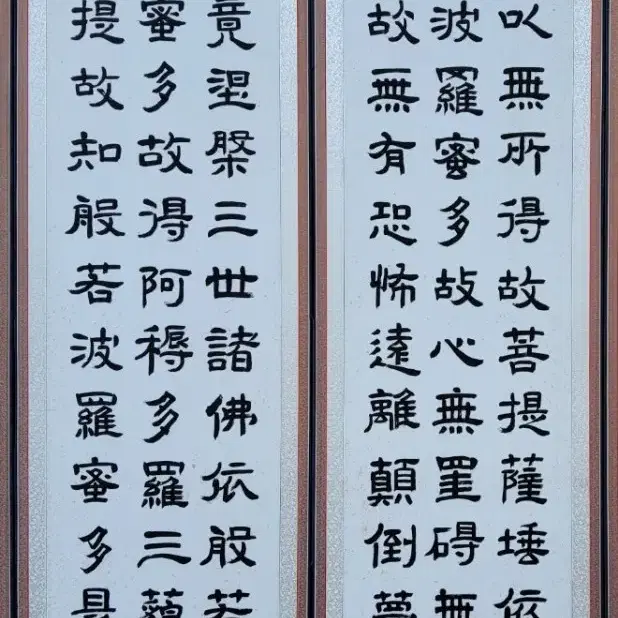 以無所得故菩提薩埵依
波羅蜜多故心無罣碍無
故無有恐怖遠離顛倒夢
竟涅槃三世諸佛依般若
蜜多故得阿耨多羅三藐
提故知般若波羅蜜多是